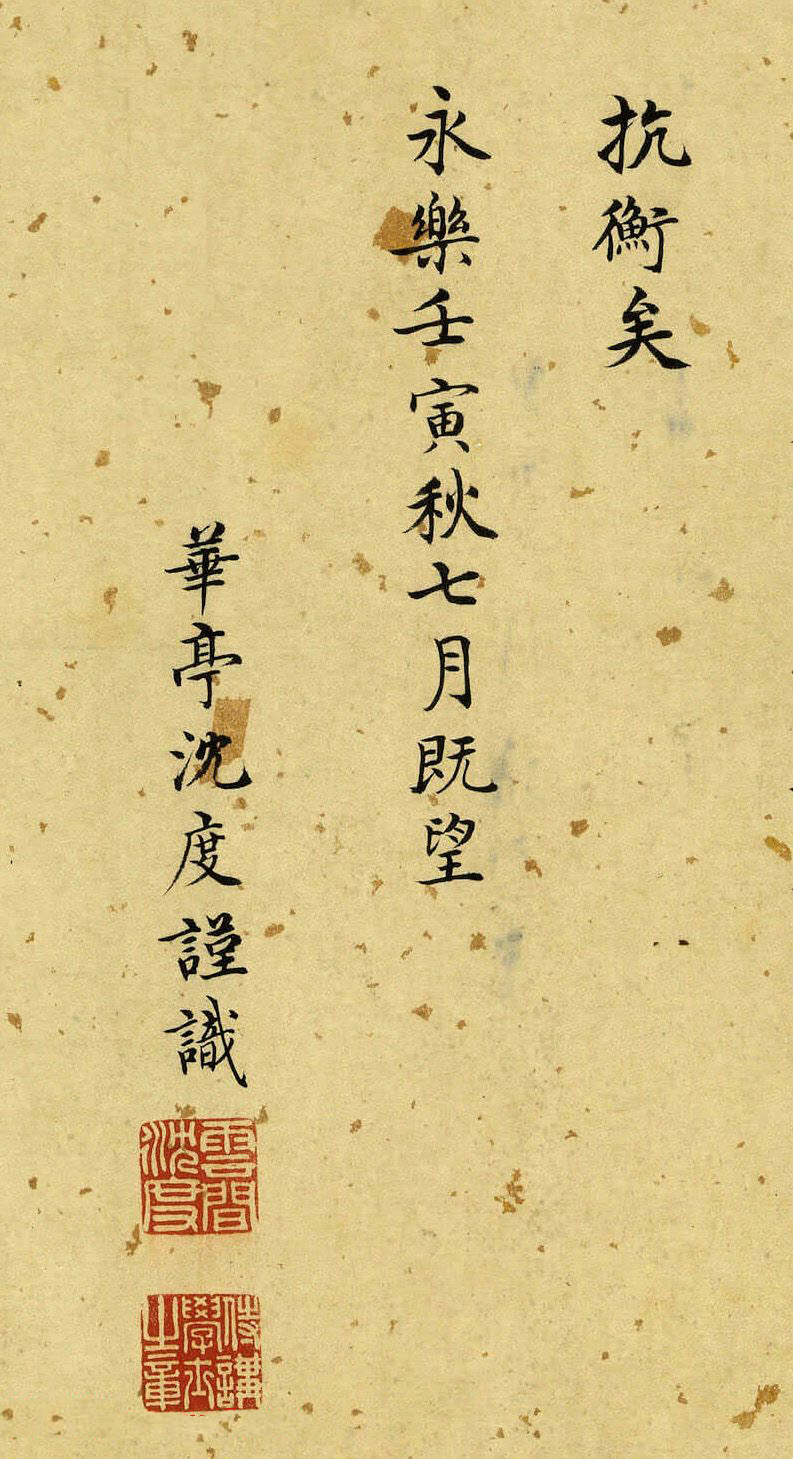 抗衡矣
永樂壬寅秋七月既望
華亭沈度謹識
雲間沈度
侍講學士之章